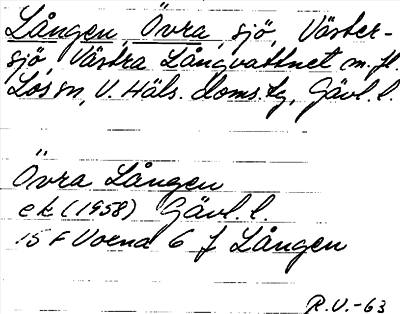 Lången Övra, sjö, Väster-
sjö, Västra Långvattnet m. fl.
Los sn, V. Häls. doms. tg, Gävl. l.
Övra Lången
ek (1958) Gävl. l.
15 F Voxna 6 f Lången
R.V.-63